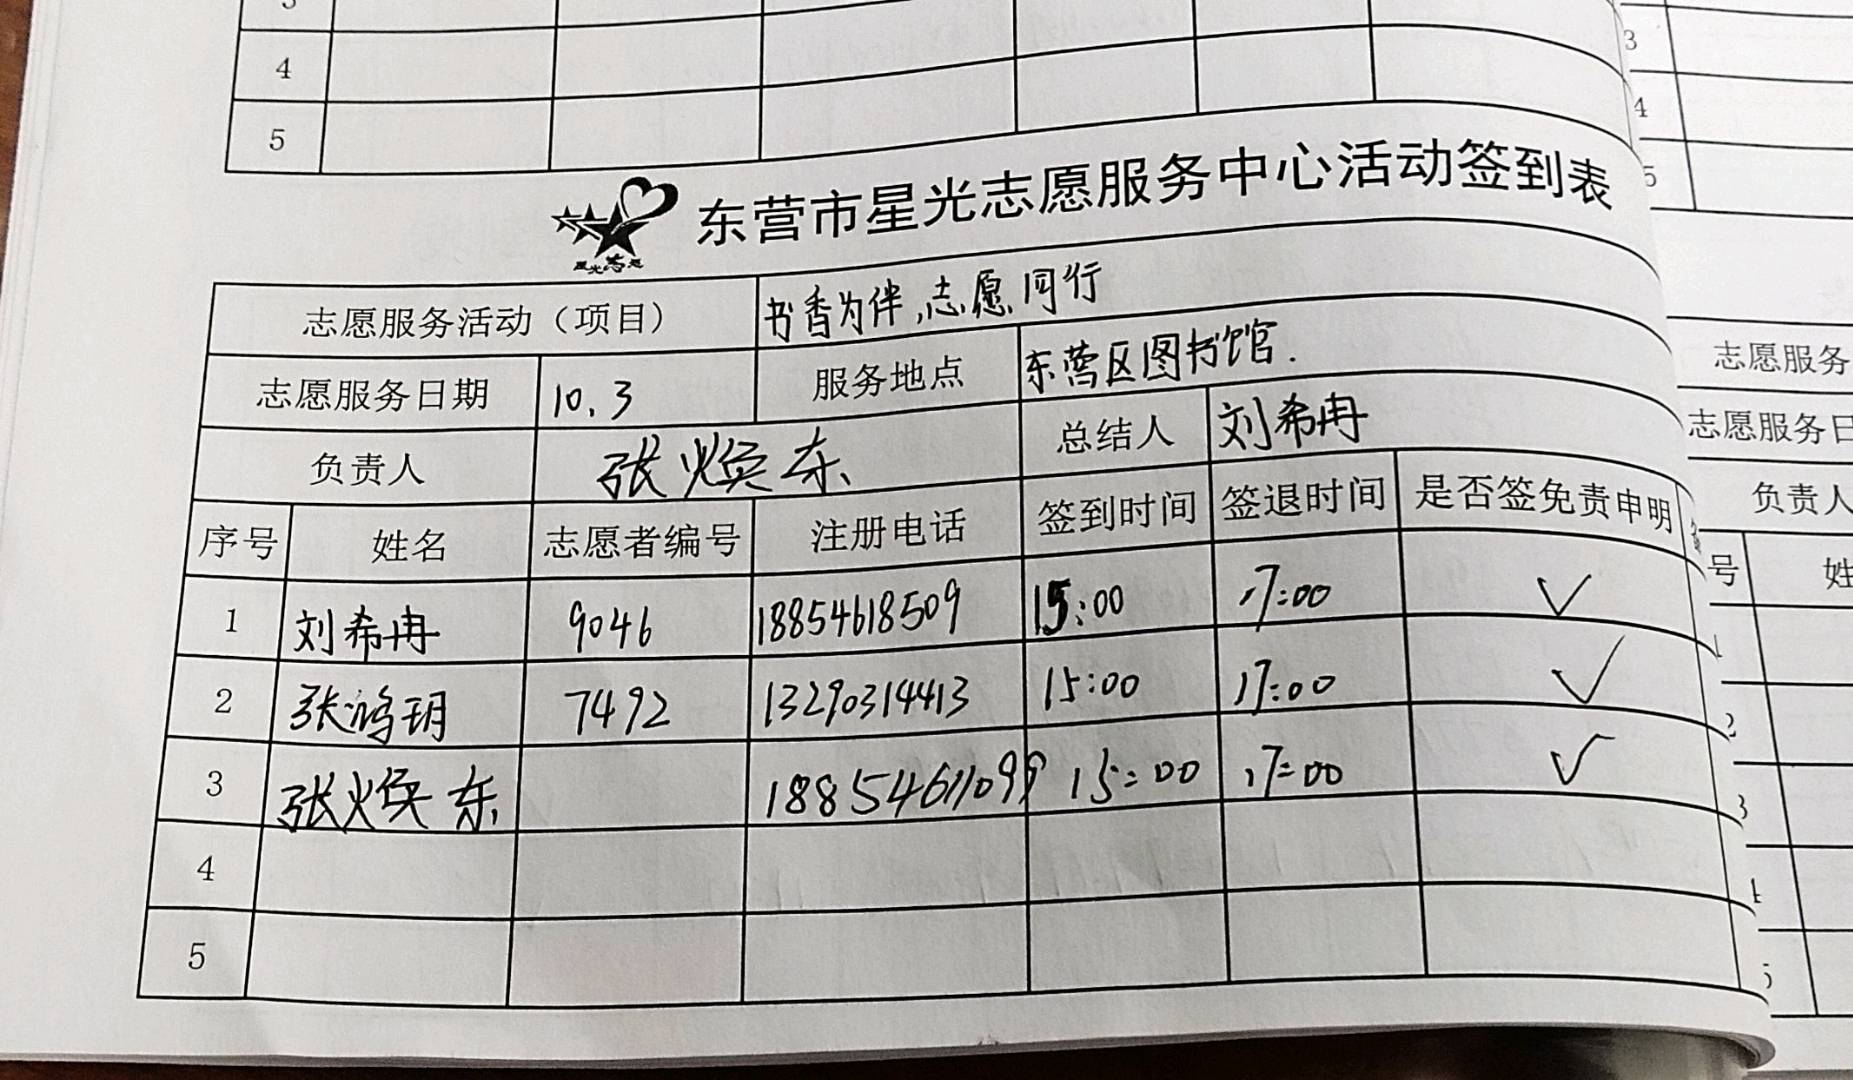 3
4
5
东营市星光志愿服务中心活动签到表
星光志愿
志愿服务活动（项目） 书香为伴,志愿同行
志愿服务日期 10.3 服务地点 东营区图书馆.
负责人 张焕东 总结人 刘希冉
序号 姓名 志愿者编号 注册电话 签到时间 签退时间 是否签免责申明
1 刘希冉 9046 18854618509 15:00 17:00 √
2 张鸿玥 7492 13290314413 15:00 17:00 √
3 张焕东 18854611099 15:00 17:00 √
4
5
3
4
5
志愿服务
志愿服务日
负责人
号 姓
1
2
3
4
5